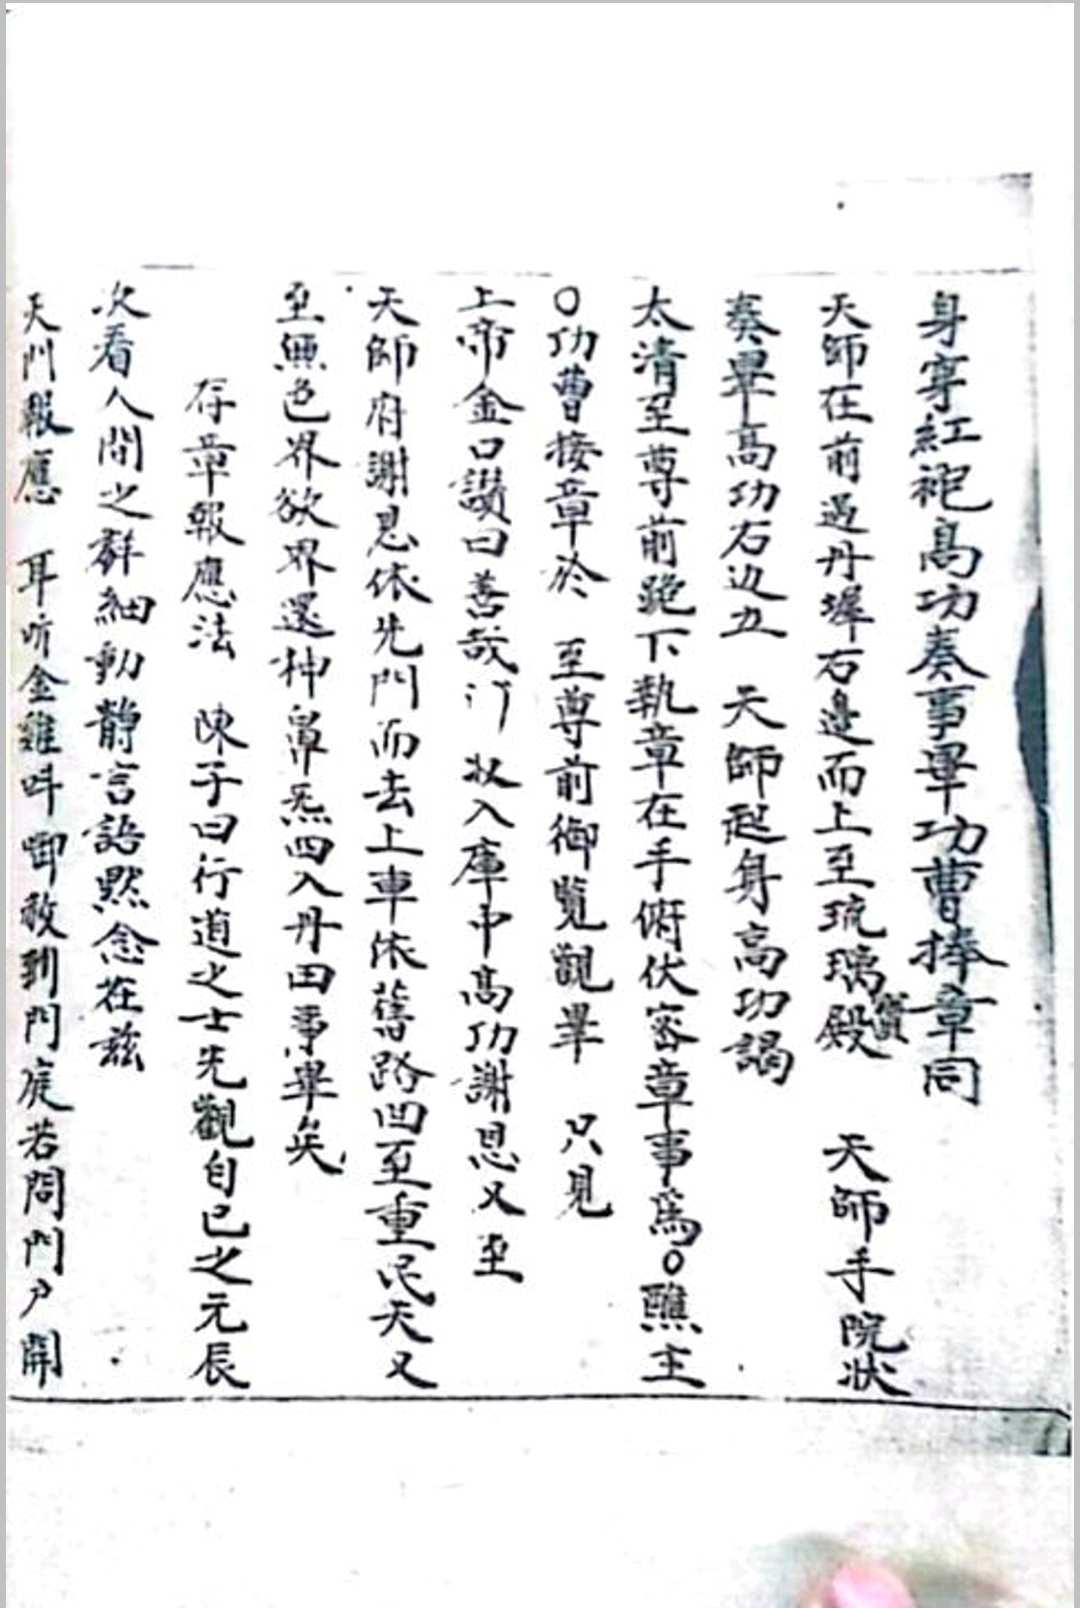 身穿紅袍高功奏事畢功曹捧章同
天師在前過丹墀右邊而上至琉璃寶殿　天師手院狀
奏畢高功右边立　天師起身高功謁
太清至尊前跪下執章在手俯伏審章事爲○醮主
○功曹接章於　至尊前御覧觀畢　只見
上帝金口讃曰善哉　收入庫中高功謝恩又至
天師府謝恩依先門而去上車依舊路凹至重民天又
至無色界欲界還神鼻炁四入丹田事畢矣
存章報應法　陳子曰行道之士先觀自己之元辰
次看人間之詳細動靜言語黙念在兹
天門報應　耳听金雞呌啣敕到門庭若問門戸開